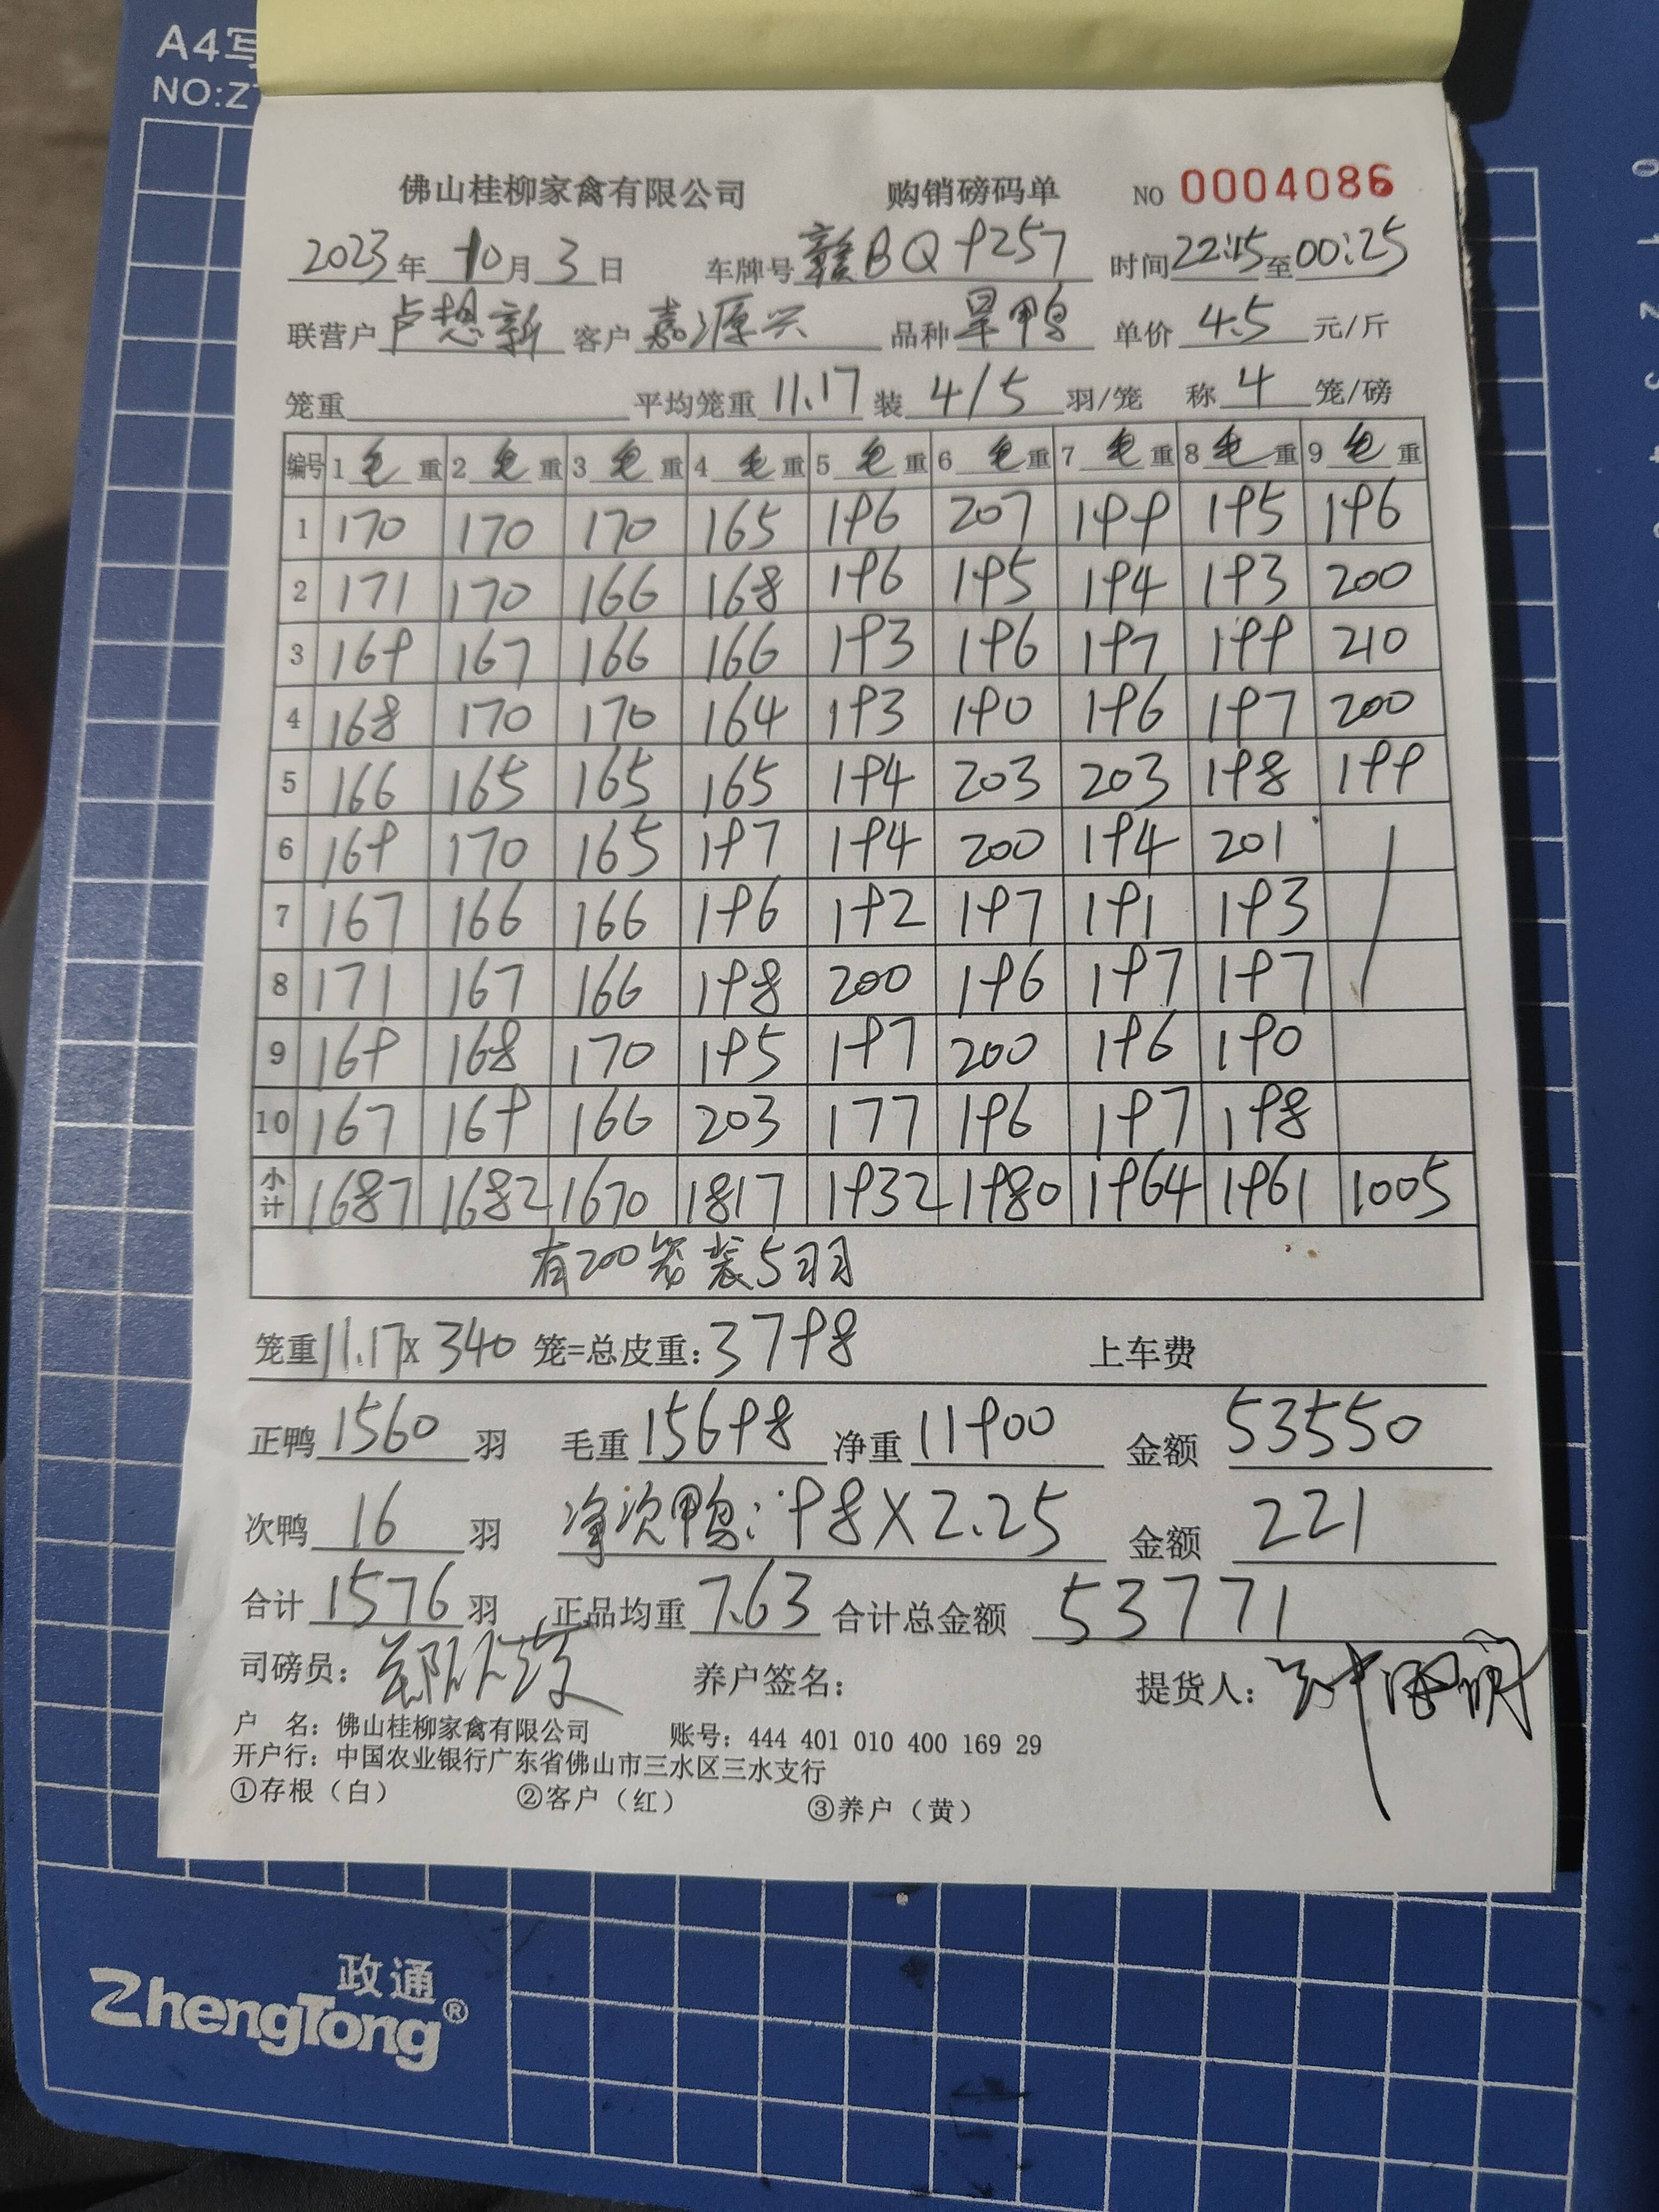 A4写
NO:Z
佛山桂柳家禽有限公司 购销磅码单 NO 0004086
2023年 10月 3日 车牌号 赣BQ9257 时间 22:15至00:25
联营户 卢想新 客户 嘉源兴 品种 旱鸭 单价 4.5 元/斤
笼重 平均笼重 11.17 装 4/5 羽/笼 称 4 笼/磅
编号 1毛重 2毛重 3毛重 4毛重 5毛重 6毛重 7毛重 8毛重 9毛重
1 170 170 170 165 196 207 199 195 196
2 171 170 166 168 196 195 194 193 200
3 169 167 166 166 193 196 197 199 210
4 168 170 170 164 193 190 196 197 200
5 166 165 165 165 194 203 203 198 199
6 169 170 165 197 194 200 194 201
7 167 166 166 196 192 197 191 193
8 171 167 166 198 200 196 197 197
9 169 168 170 195 197 200 196 190
10 167 169 166 203 177 196 197 198
小计 1687 1682 1670 1817 1932 1980 1964 1961 1005
有200笼装5羽
笼重11.17X 340 笼=总皮重:3798 上车费
正鸭 1560 羽 毛重 15698 净重 11900 金额 53550
次鸭 16 羽 净次鸭:98X2.25 金额 221
合计 1576 羽 正品均重 7.63 合计总金额 53771
司磅员: 养户签名: 提货人:
户 名: 佛山桂柳家禽有限公司 账号: 444 401 010 400 169 29
开户行: 中国农业银行广东省佛山市三水区三水支行
①存根（白） ②客户（红） ③养户（黄）
政通
ZhengTong®